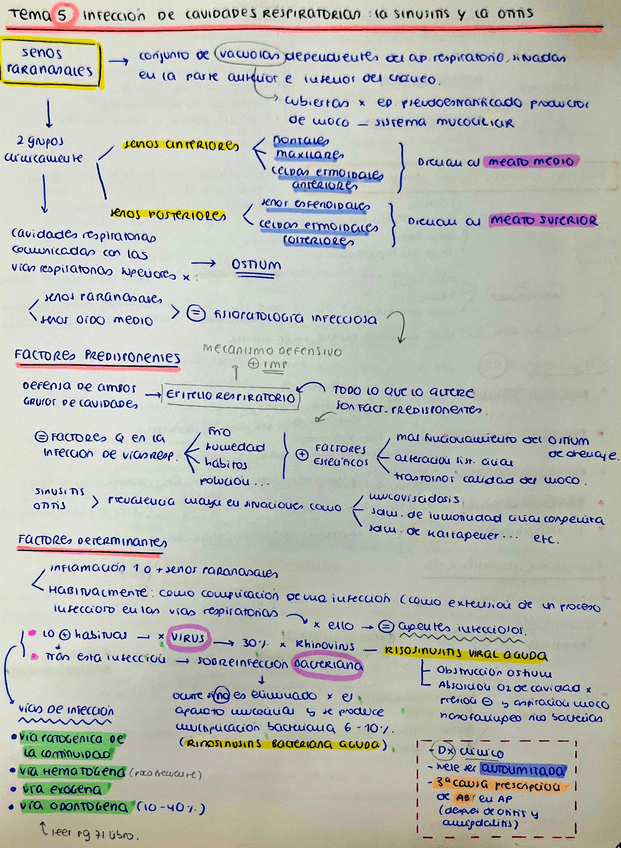 Tema 5 INFECCIÓN DE CAVIDADES RESPIRATORIAS: la SINUSITIS y la OTITIS
SENOS PARANASALES → conjunto de vacuolas dependientes del ap. respiratorio, situadas
en la parte anterior e inferior del cráneo.
cubiertas x ep. pseudoestratificado productor
de moco — sistema mucociliar
2 grupos
clínicamente
senos anteriores
frontales
maxilares
celdas etmoidales
anteriores
Drenan al meato medio
senos posteriores
senos esfenoidales
celdas etmoidales
posteriores
Drenan al meato superior
cavidades respiratorias
comunicadas con las
vías respiratorias superiores x: → OSTIUM
senos paranasales
senos oído medio
= fisiopatología infecciosa
FACTORES PREDISPONENTES
MECANISMO DEFENSIVO
⊕ IMP
DEFENSA DE AMBOS
GRUPOS DE CAVIDADES → EPITELIO RESPIRATORIO
TODO LO QUE LO ALTERE
SON FACT. PREDISPONENTES.
= FACTORES Q EN LA
INFECCIÓN DE VÍAS RESP.
frío
humedad
hábitos
polución...
⊕ FACTORES
ESPECÍFICOS
mal funcionamiento del ostium
de drenaje.
alteración fist. ciliar
trastornos calidad del moco.
SINUSITIS
OTITIS > Prevalencia mayor en situaciones como
mucoviscidosis
sdm. de inmovilidad ciliar congénita
sdm. de Kartagener... etc.
FACTORES DETERMINANTES
INFLAMACIÓN 1 o + senos paranasales
HABITUALMENTE: como complicación de una infección (como extensión de un proceso
infeccioso en las vías respiratorias
x ello → = agentes infecciosos.
lo ⊕ habitual → x VIRUS → 30% x Rhinovirus — RISOSINUSITIS VIRAL AGUDA
Obstrucción ostium
Absorción O2 de cavidad x
presión ⊖ y aspiración moco
nasofaríngeo rico bacterias
Trás esta infección → SOBREINFECCIÓN BACTERIANA
ocurre si no es eliminado x el
aparato mucociliar y se produce
multiplicación bacteriana 6-10%.
(RINOSINUSITIS BACTERIANA AGUDA)
VÍAS DE INFECCIÓN
• VÍA PATOGÉNICA DE
LA CONTINUIDAD
• VÍA HEMATÓGENA (poco frecuente)
• VÍA EXÓGENA
• VÍA ODONTÓGENA (10-40%)
leer pg 71 libro.
- Dx clínico
- suele ser autolimitada
- 3ª causa prescripción
de AB en AP
(después de otitis y
amigdalitis)